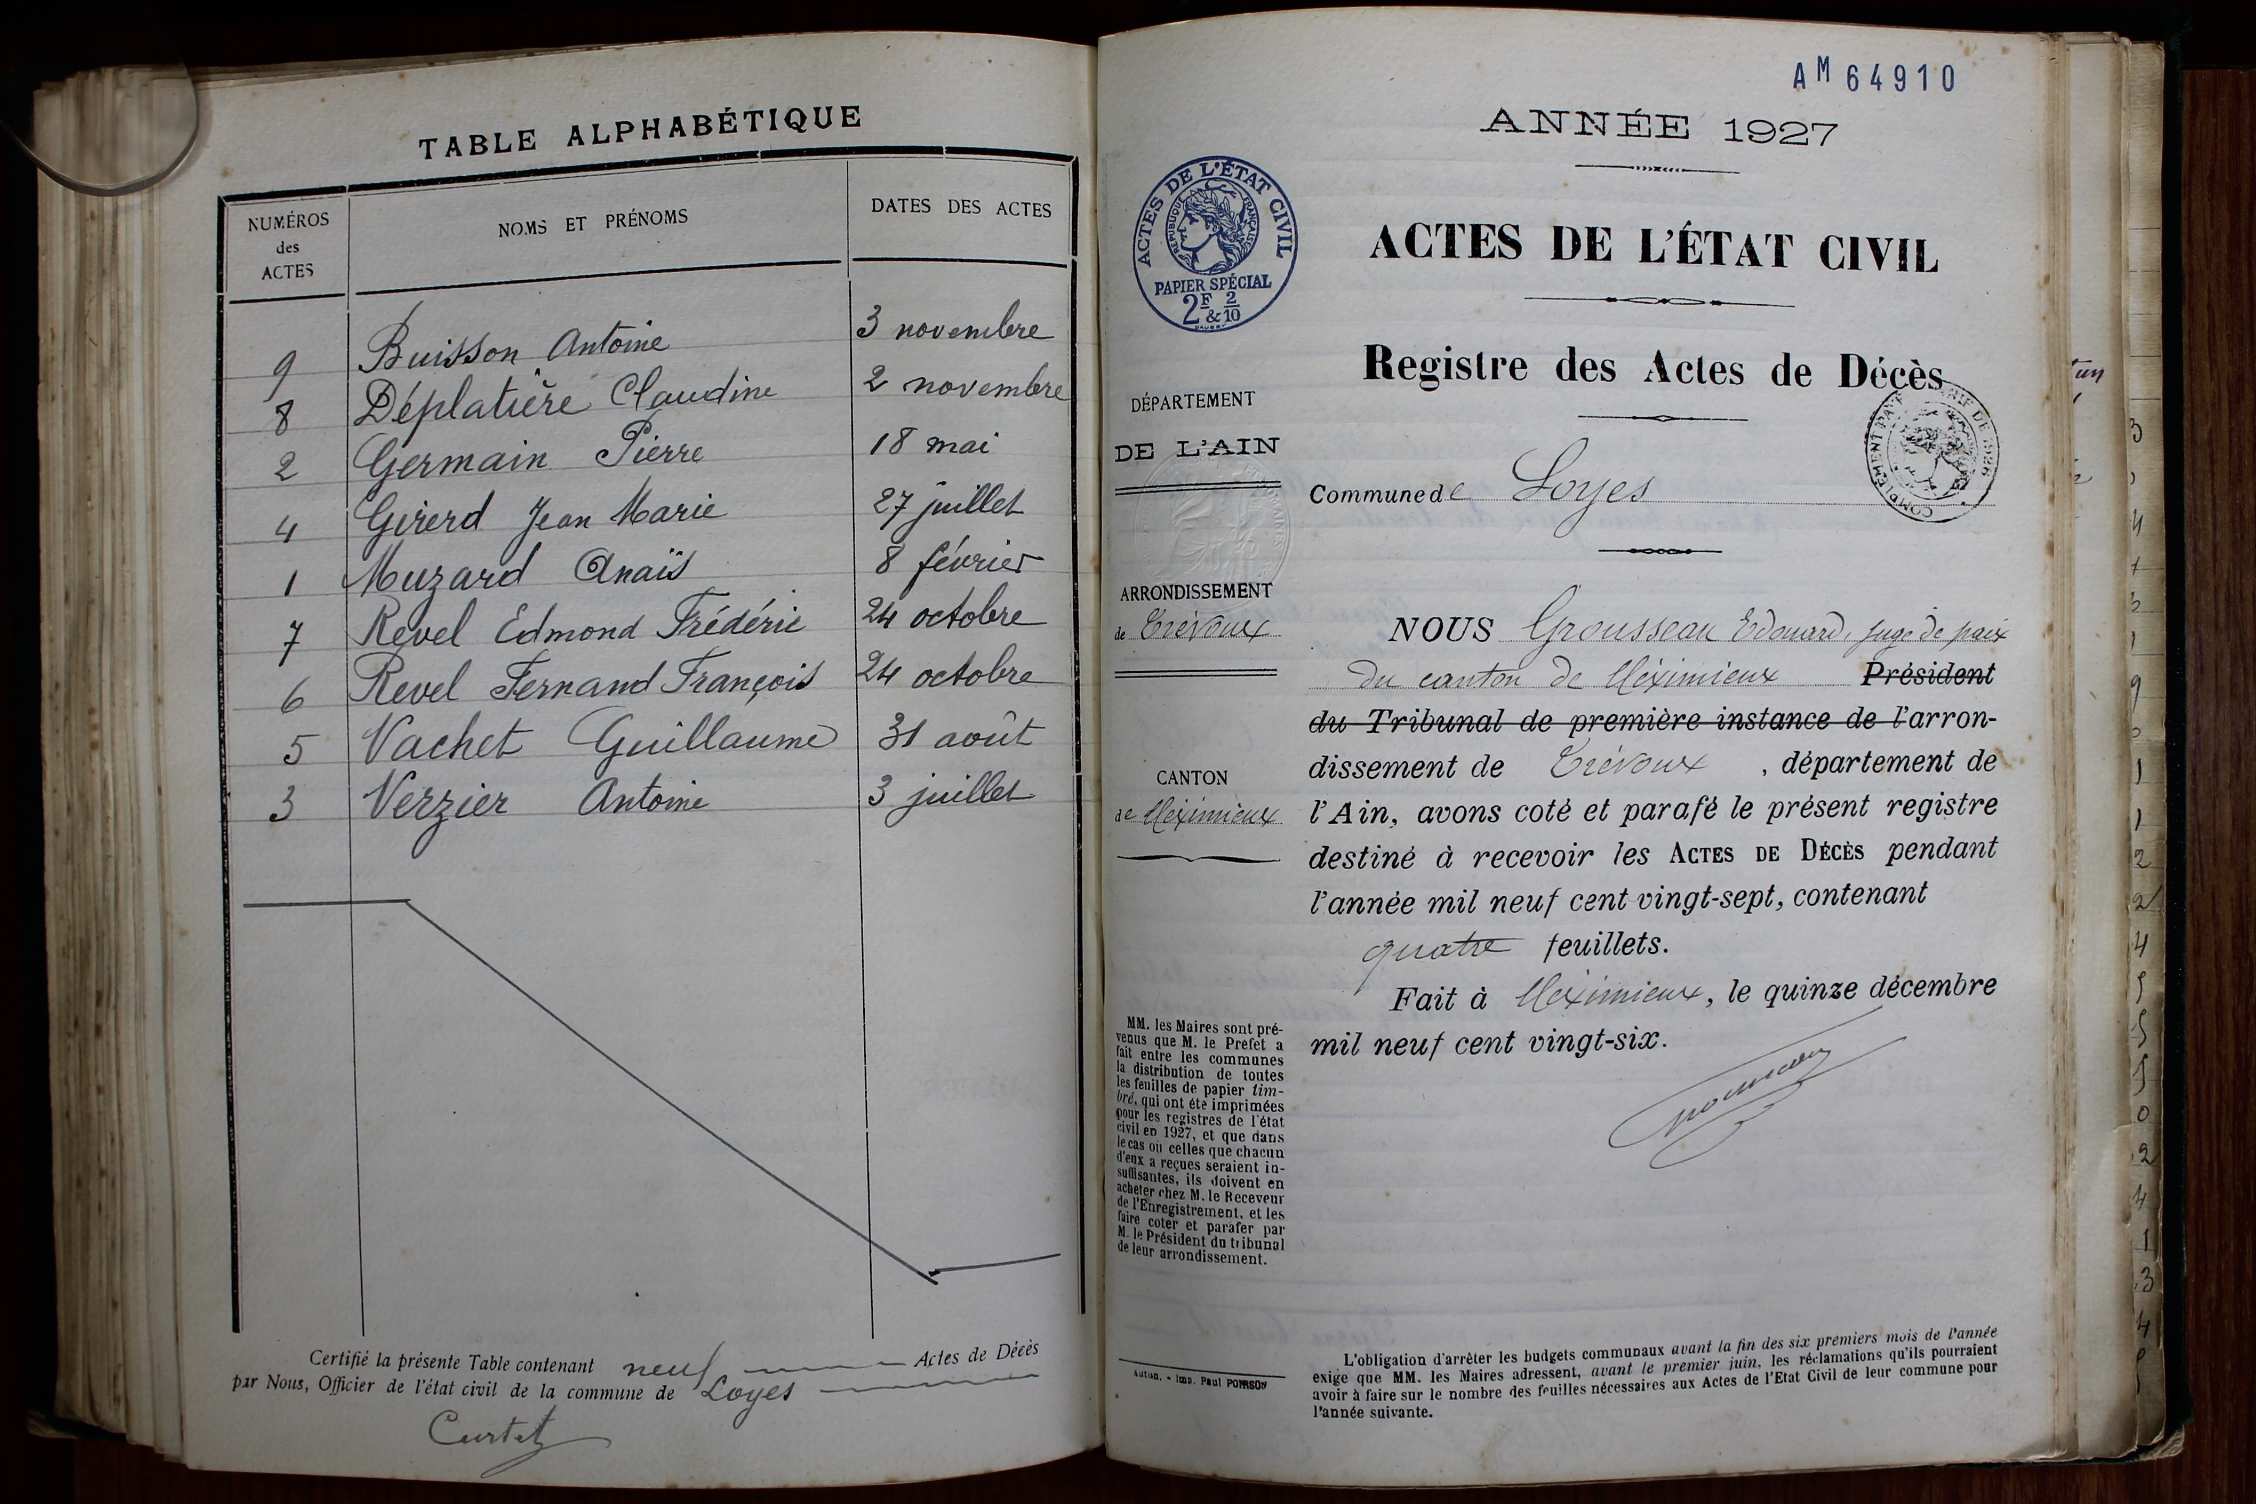 TABLE ALPHABÉTIQUE
NUMÉROS
des
ACTES
NOMS ET PRÉNOMS
DATES DES ACTES
9 Buisson Antoine 3 novembre
8 Déplatière Claudine 2 novembre
2 Germain Pierre 18 mai
4 Girerd Jean Marie 27 juillet
1 Muzard Anaïs 8 février
7 Revel Edmond Frédéric 24 octobre
6 Revel Fernand François 24 octobre
5 Vachet Guillaume 31 août
3 Verzier Antoine 3 juillet
Certifié la présente Table contenant neuf Actes de Décès
par Nous, Officier de l'état civil de la commune de Loyes
Curtet
AM 64910
ANNÉE 1927
ACTES DE L'ÉTAT CIVIL
RÉPUBLIQUE FRANÇAISE
PAPIER SPÉCIAL
2F & 2/10
ACTES DE L'ÉTAT CIVIL
Registre des Actes de Décès
DÉPARTEMENT
DE L'AIN
Commune de Loyes
ARRONDISSEMENT
de Trévoux
CANTON
de Méximieux
NOUS Grousseau Edouard, juge de paix
du canton de Méximieux Président
du Tribunal de première instance de l'arron-
dissement de Trévoux, département de
l'Ain, avons coté et parafé le présent registre
destiné à recevoir les ACTES DE DÉCÈS pendant
l'année mil neuf cent vingt-sept, contenant
quatre feuillets.
Fait à Méximieux, le quinze décembre
mil neuf cent vingt-six.
MM. les Maires sont pré-
venus que M. le Préfet a
fait entre les communes
la distribution de toutes
les feuilles de papier tim-
bré, qui ont été imprimées
pour les registres de l'état
civil en 1927, et que dans
le cas où celles que chacun
d'eux a reçues seraient in-
suffisantes, ils doivent en
acheter chez M. le Receveur
de l'Enregistrement, et les
faire coter et parafer par
M. le Président du tribunal
de leur arrondissement.
Autun. - Imp. Paul POIRSON
L'obligation d'arrêter les budgets communaux avant la fin des six premiers mois de l'année
exige que MM. les Maires adressent, avant le premier juin, les réclamations qu'ils pourraient
avoir à faire sur le nombre des feuilles nécessaires aux Actes de l'Etat Civil de leur commune pour
l'année suivante.